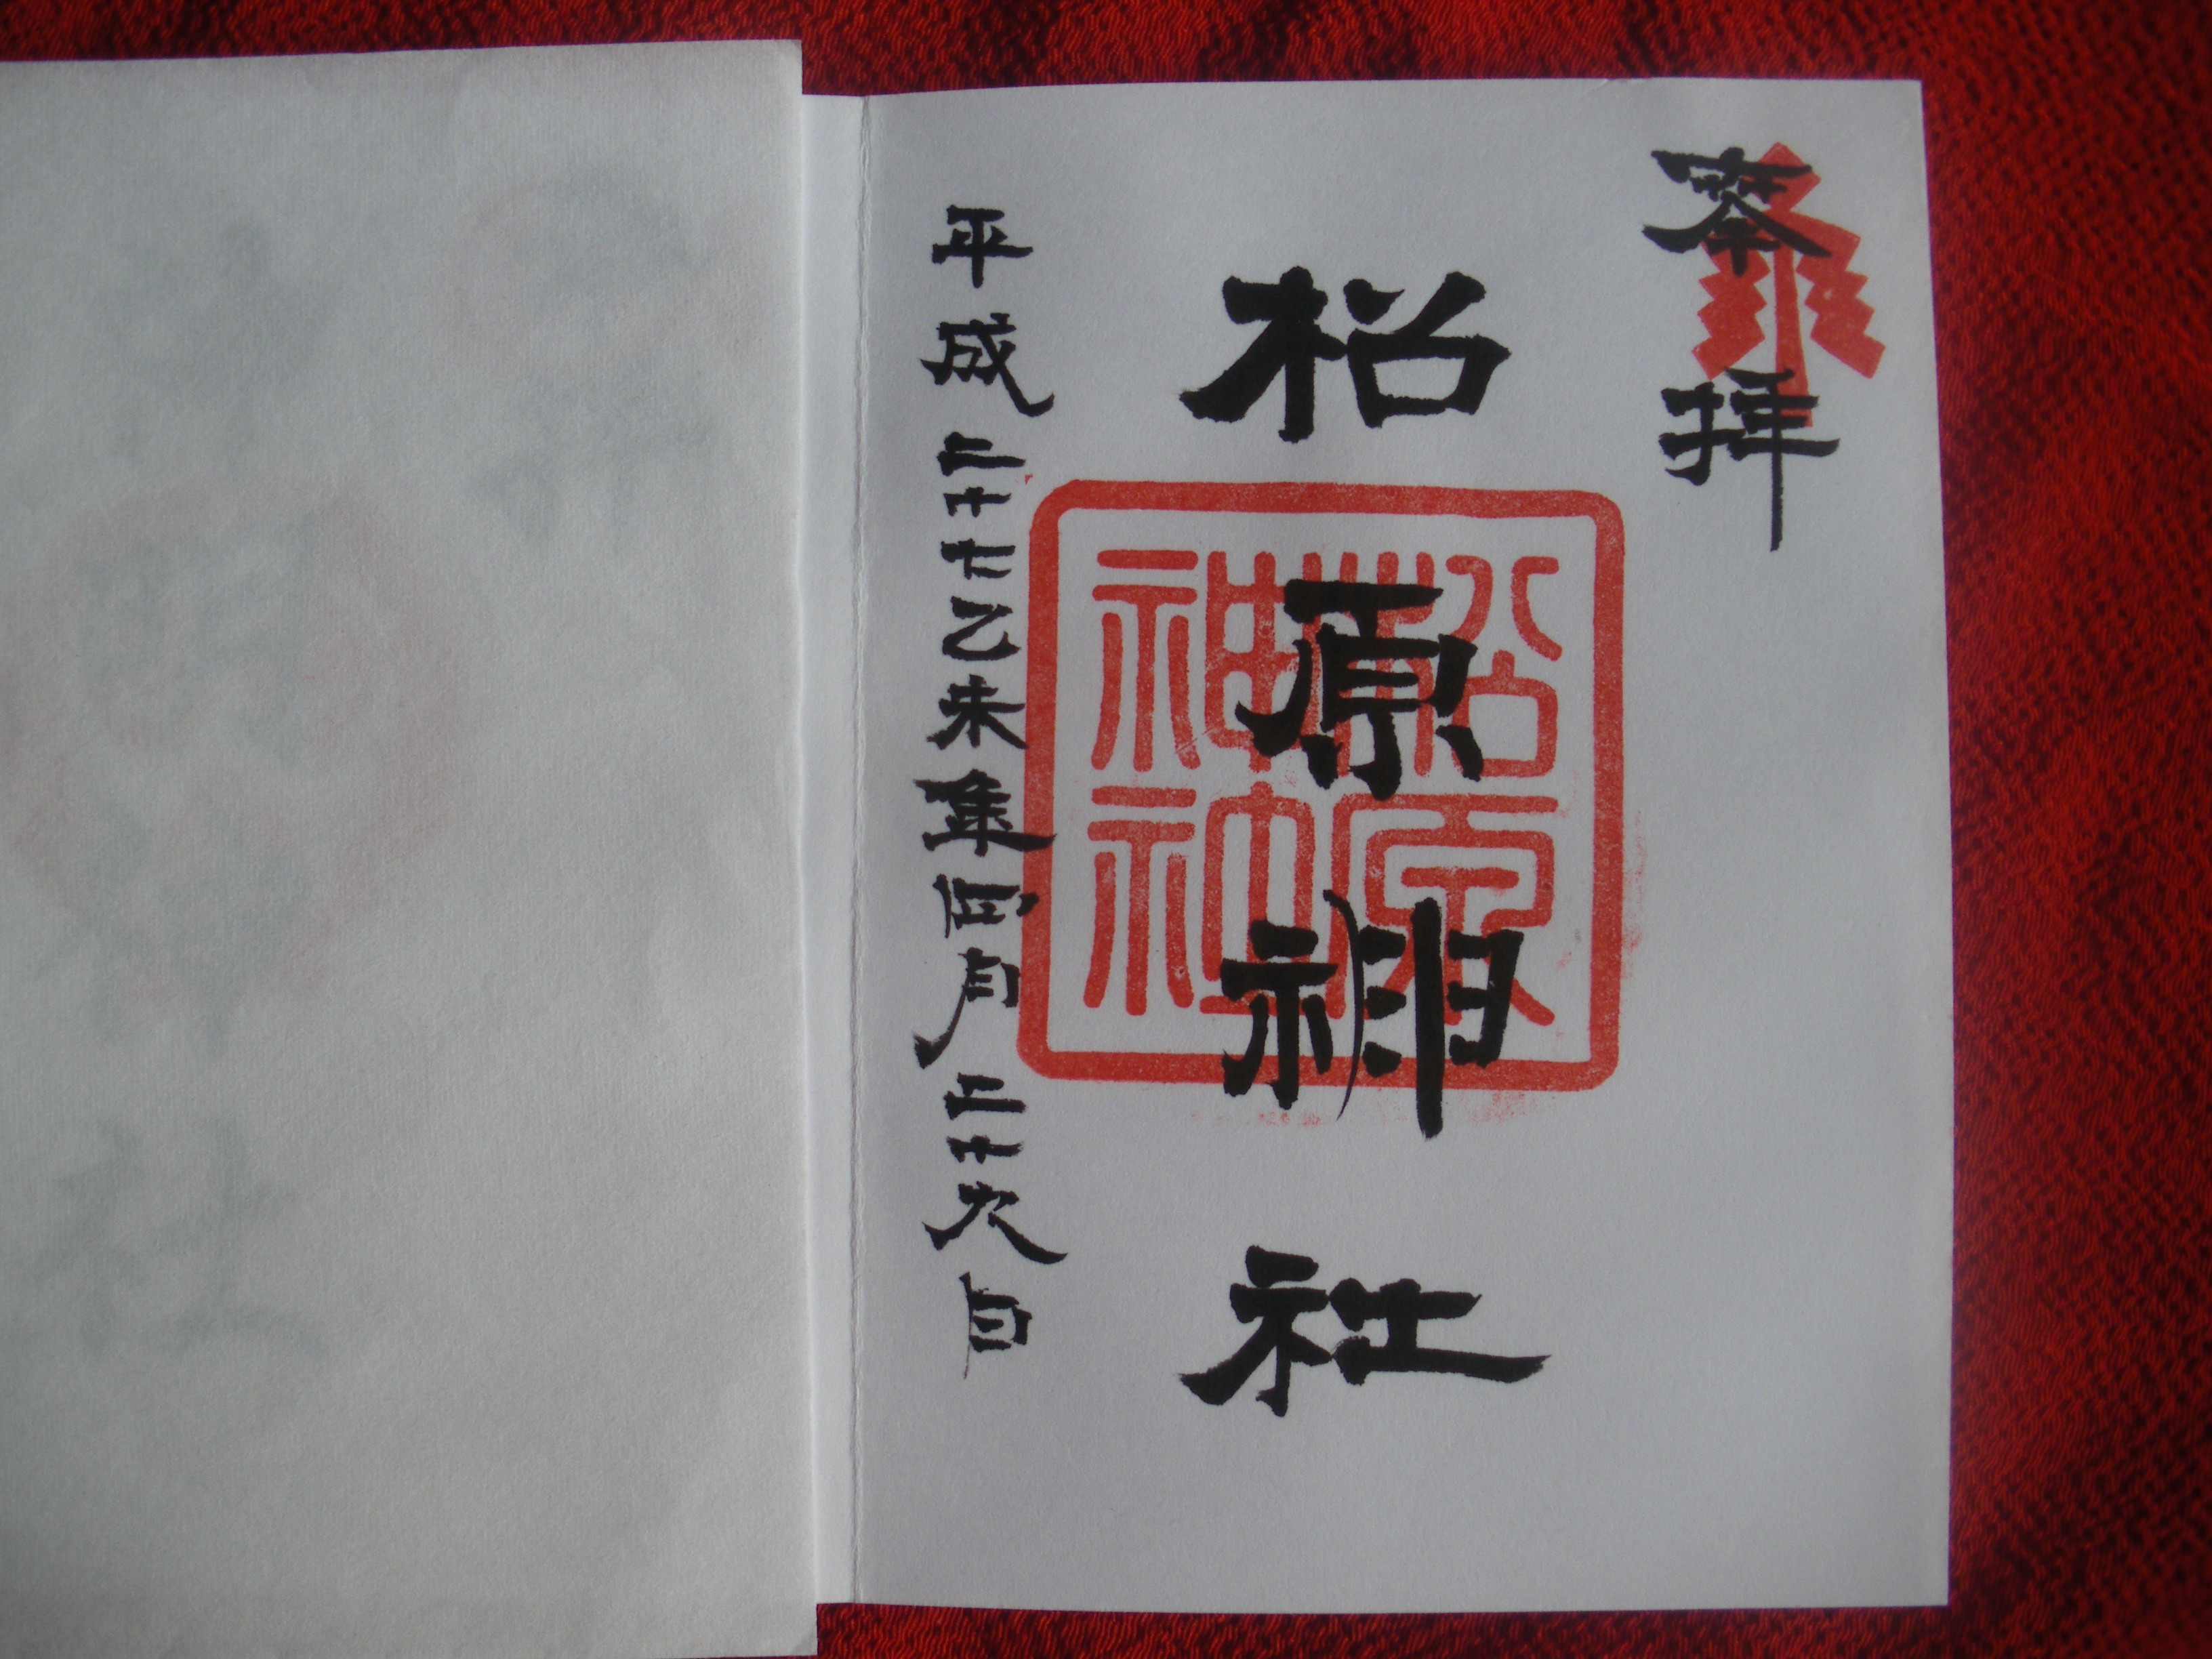 奉拝
柗原神社
平成二十七乙未年四月二十六日
柗原
神社